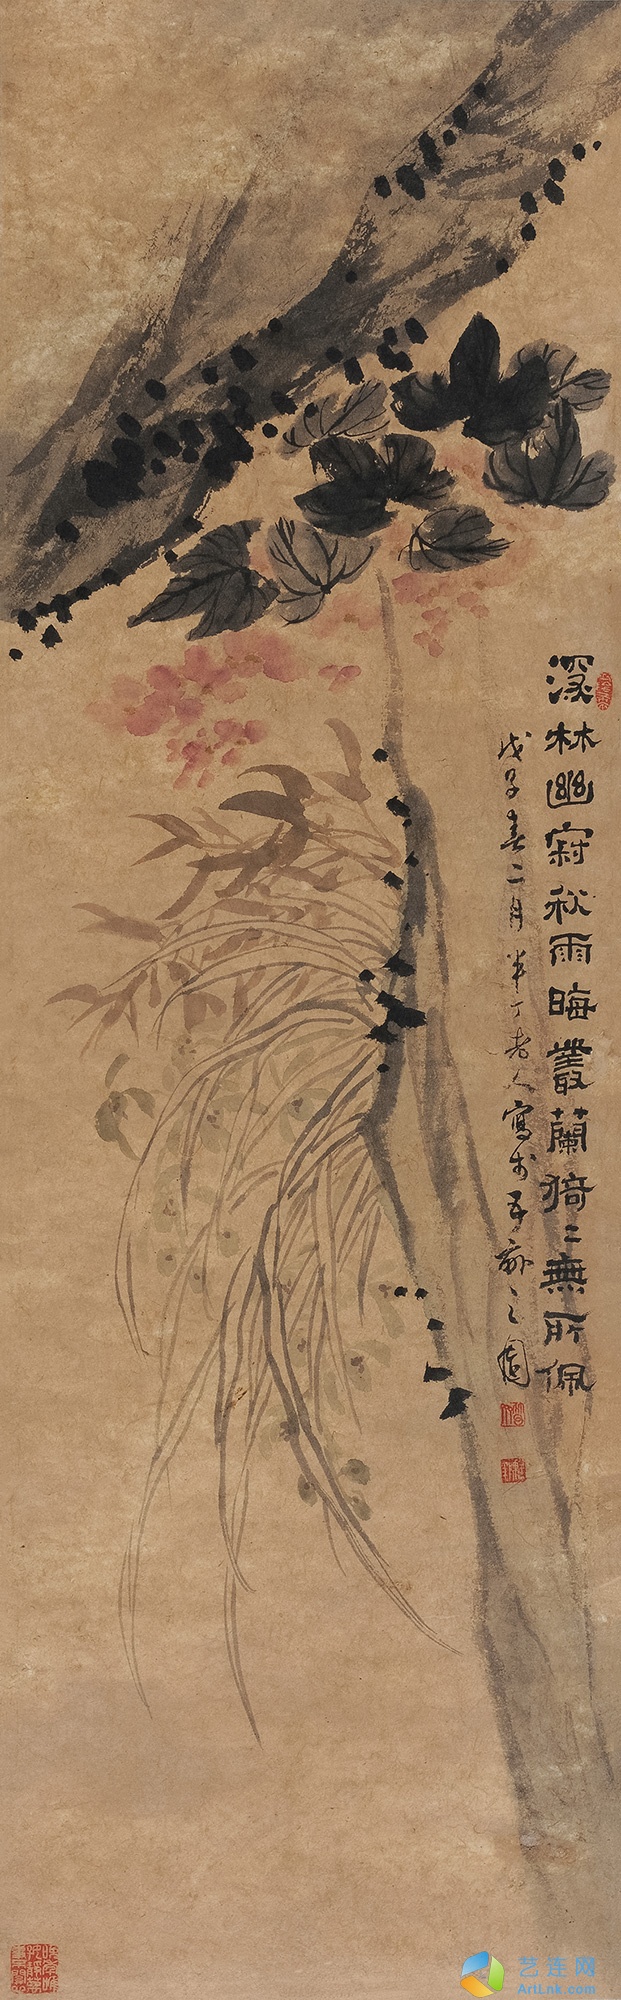 深林幽寂秋雨晦叢蘭猗〻無所佩
戊子春二月半丁老人寫於五畝之園
艺连网
ArtLnk.com